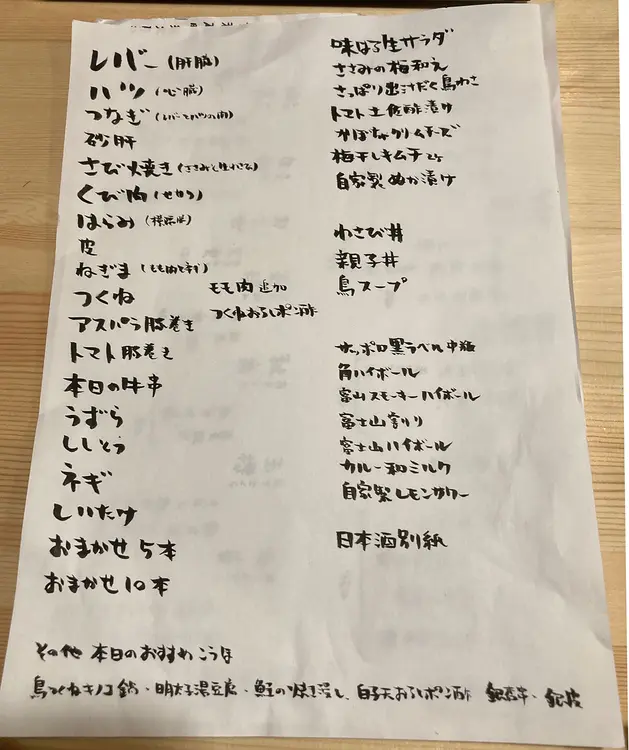 レバー (肝臓)
ハツ (心臓)
つなぎ (レバーとハツの間)
砂肝
さび焼き (ささみと生わさび)
くび肉 (せせり)
はらみ (横隔膜)
皮
ねぎま (もも肉とネギ)
つくね
アスパラ豚巻き
トマト豚巻き
本日の牛串
うずら
ししとう
ネギ
しいたけ
おまかせ 5本
おまかせ 10本
モモ肉 追加
つくねおろしポン酢
味はる生サラダ
ささみの梅和え
さっぱり出汁だく鳥わさ
トマト土佐酢漬け
かぼちゃクリームチーズ
梅干しキムチ
自家製ぬか漬け
わさび丼
親子丼
鳥スープ
サッポロ黒ラベル中瓶
角ハイボール
富山スモーキーハイボール
富士山割り
富士山ハイボール
カルー和ミルク
自家製レモンサワー
日本酒別紙
その他 本日のおすすめこうほ
鳥つくねキノコ鍋・明太子湯豆腐・鮭の焼き浸し、白子天おろしポン酢